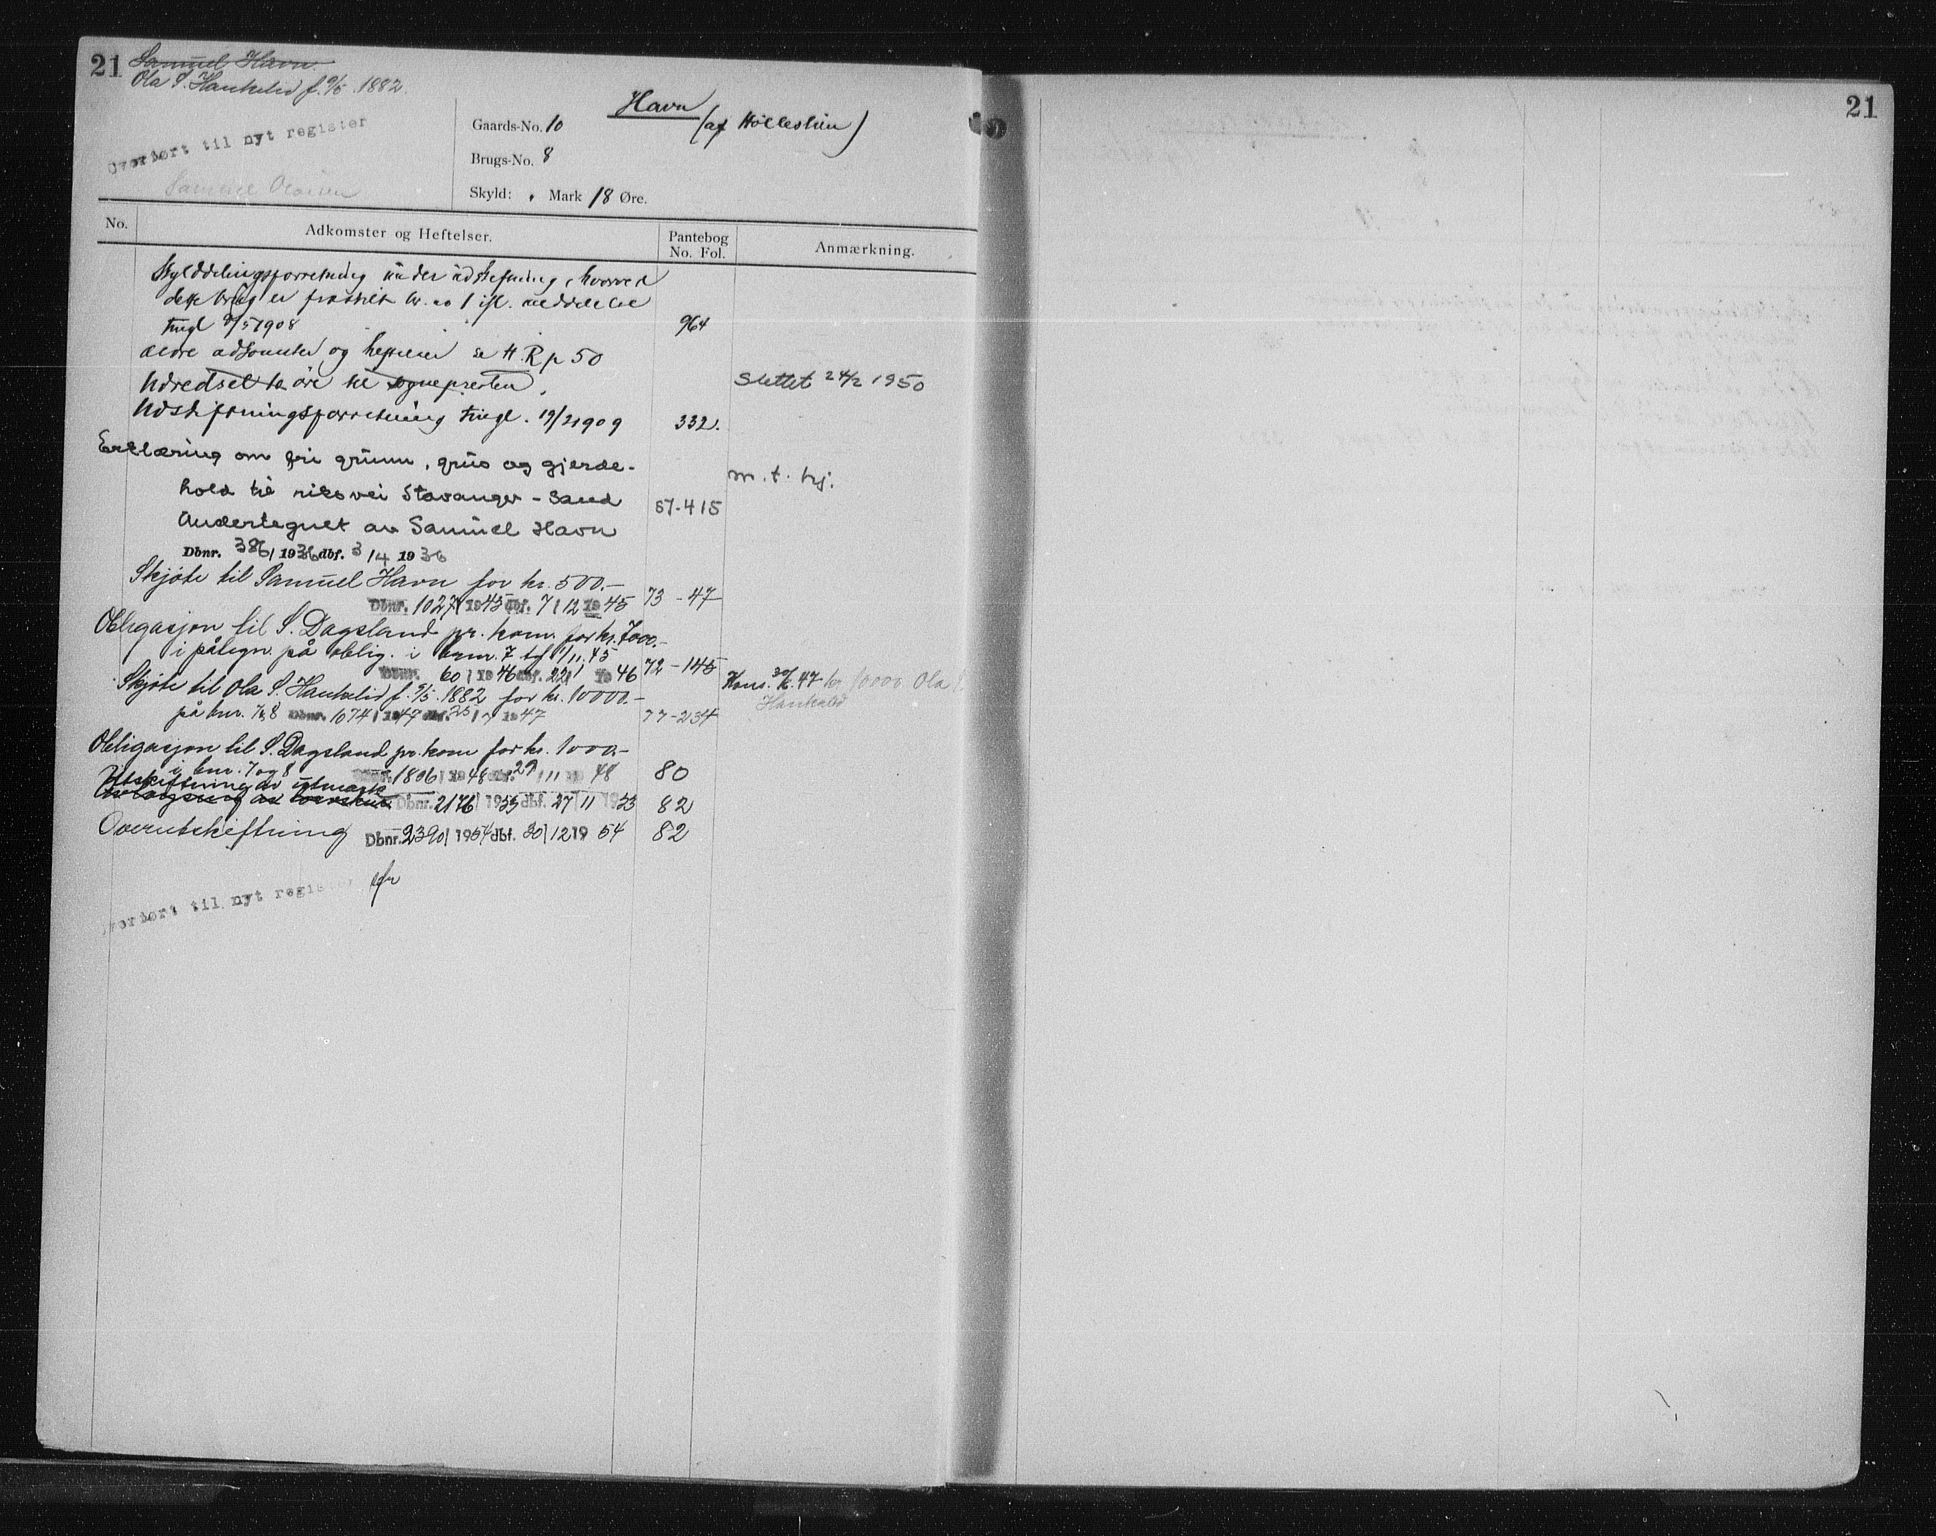 21 Samuel Havn
Ola S. Hankelid f. 9/5 1882.
Overført til nyt register
Samuel Olsen
Havn
(af Hølleslien)
Gaards-No. 10
Brugs-No. 8
Skyld: , Mark 18 Øre.
No. Adkomster og Heftelser. Pantebog No. Fol. Anmærkning.
Skylddelingsforretning under udskiftning, hvorved
dette brug er fraskilt br. no 1 ifl. meddelelse
tingl 1908 964
ældre adkomster og heftelser se H. R p 50
Udredsel to øre til sognepresten. Slettet 24/2 1950
Udskiftningsforretning tingl. 19/2 1909 332.
Erklæring om fri grunn, grus og gjerde-
hold til riksvei Stavanger - Sand m. t. hj.
Undertegnet av Samuel Havn 57-415
Dbnr. 386/1936 dbf. 3/4 1936
Skjøte til Samuel Havn for kr. 500.-
Dbnr. 1027/1945 dbf. 7/12 1945 73 - 47
Obligasjon til S. Dagsland pr. kom. for kr. 7000.-
i pålegn. på oblig. i brnr. 7 tgl 1/11.45
Dbnr. 60/1946 dbf. 22/1 1946 72 - 145
Skjøte til Ola S. Hankelid f. 9/5. 1882 for kr. 10000.- Kons. 47 kr 10000 Ola
Hankelid
på bnr. 7, 8 Dbnr. 1074/1947 dbf. 25/7 1947 77-234
Obligasjon til S. Dagsland pr. kom for kr. 1000.-
i bnr. 7 og 8 Dbnr. 1806/1948 dbf. 29/11 1948 80
Utskiftning av utmark
Dbnr. 2176/1953 dbf. 27/11 1953 82
Overutskiftning Dbnr. 2390/1954 dbf. 30/12 19 54 82
Overført til nyt register
21